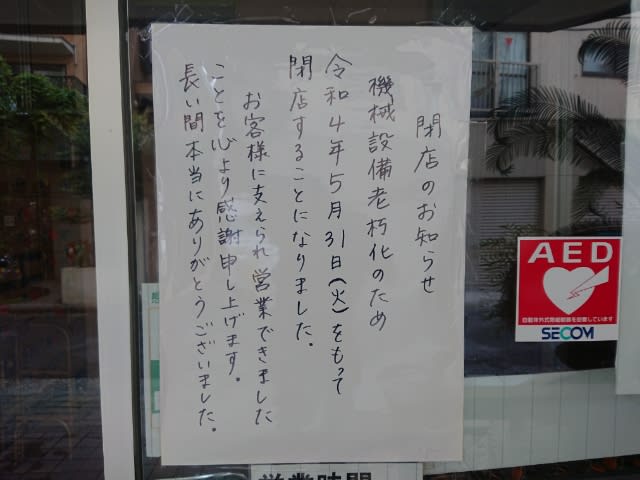 閉店のお知らせ
機械設備老朽化のため
令和4年5月31日(火)をもって
閉店することになりました。
お客様に支えられ営業できました
ことを心より感謝申し上げます。
長い間本当にありがとうございました。
AED
自動体外式除細動器を設置しています
SECOM
営業時間